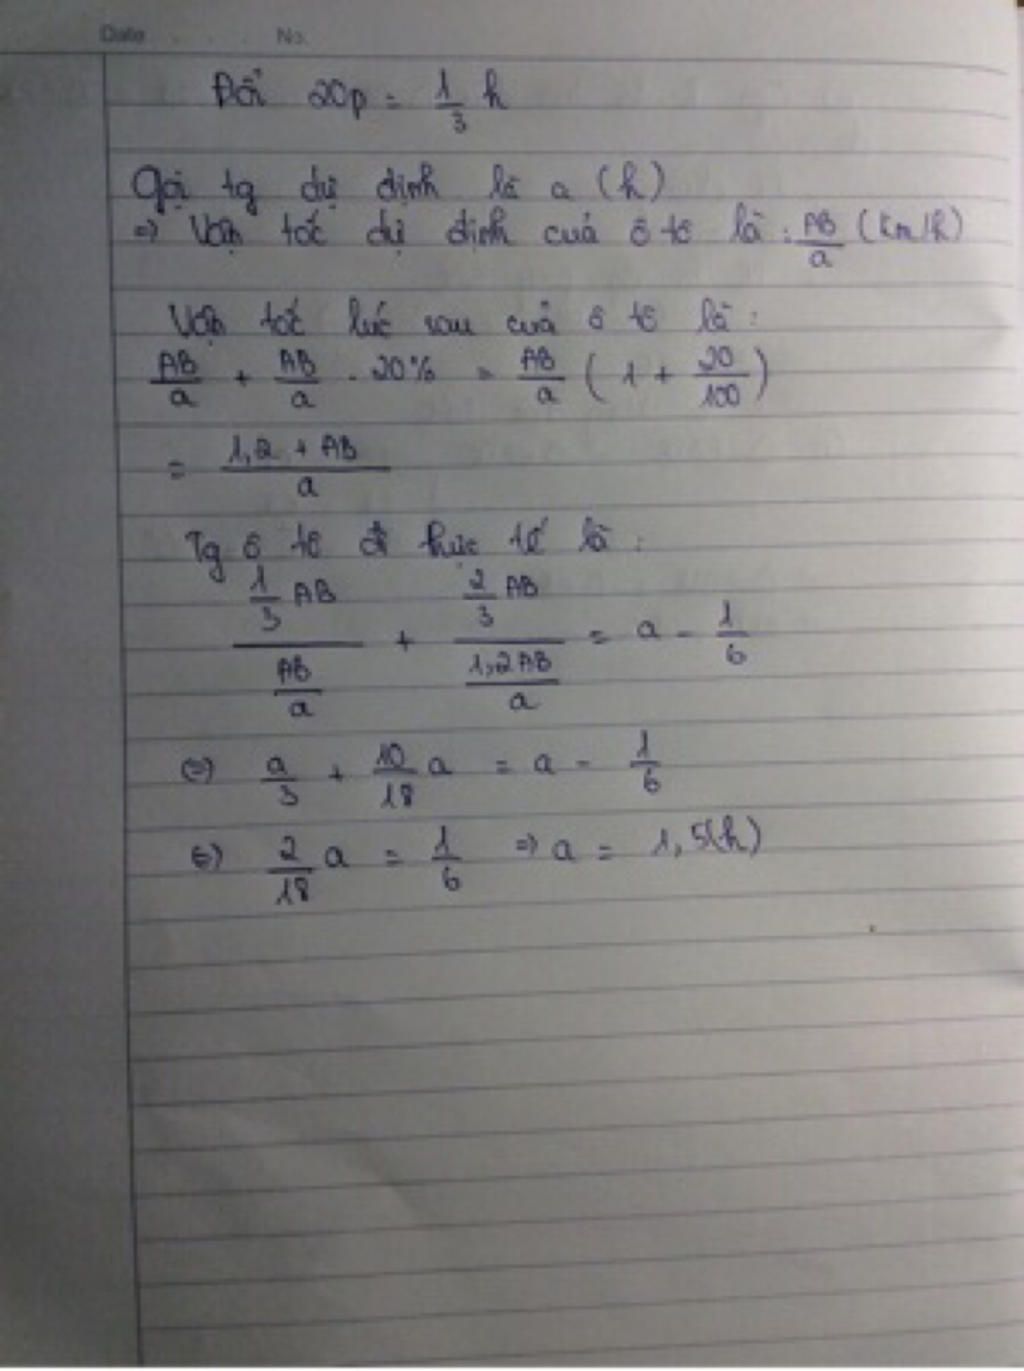 Date No.
Đổi 20p = 1/3 h
Gọi tg dự định là a (h)
=> Vận tốc dự định của ô tô là : AB/a (km/h)
Vận tốc lúc sau của ô tô là :
AB/a + AB/a . 20% = AB/a ( 1 + 20/100 )
= (1,2 + AB)/a
Tg ô tô đi thực tế là :
(1/3 AB)/(AB/a) + (2/3 AB)/(1,2AB/a) = a - 1/6
(=) a/3 + 10/18 a = a - 1/6
(=) 2/18 a = 1/6 => a = 1,5(h)